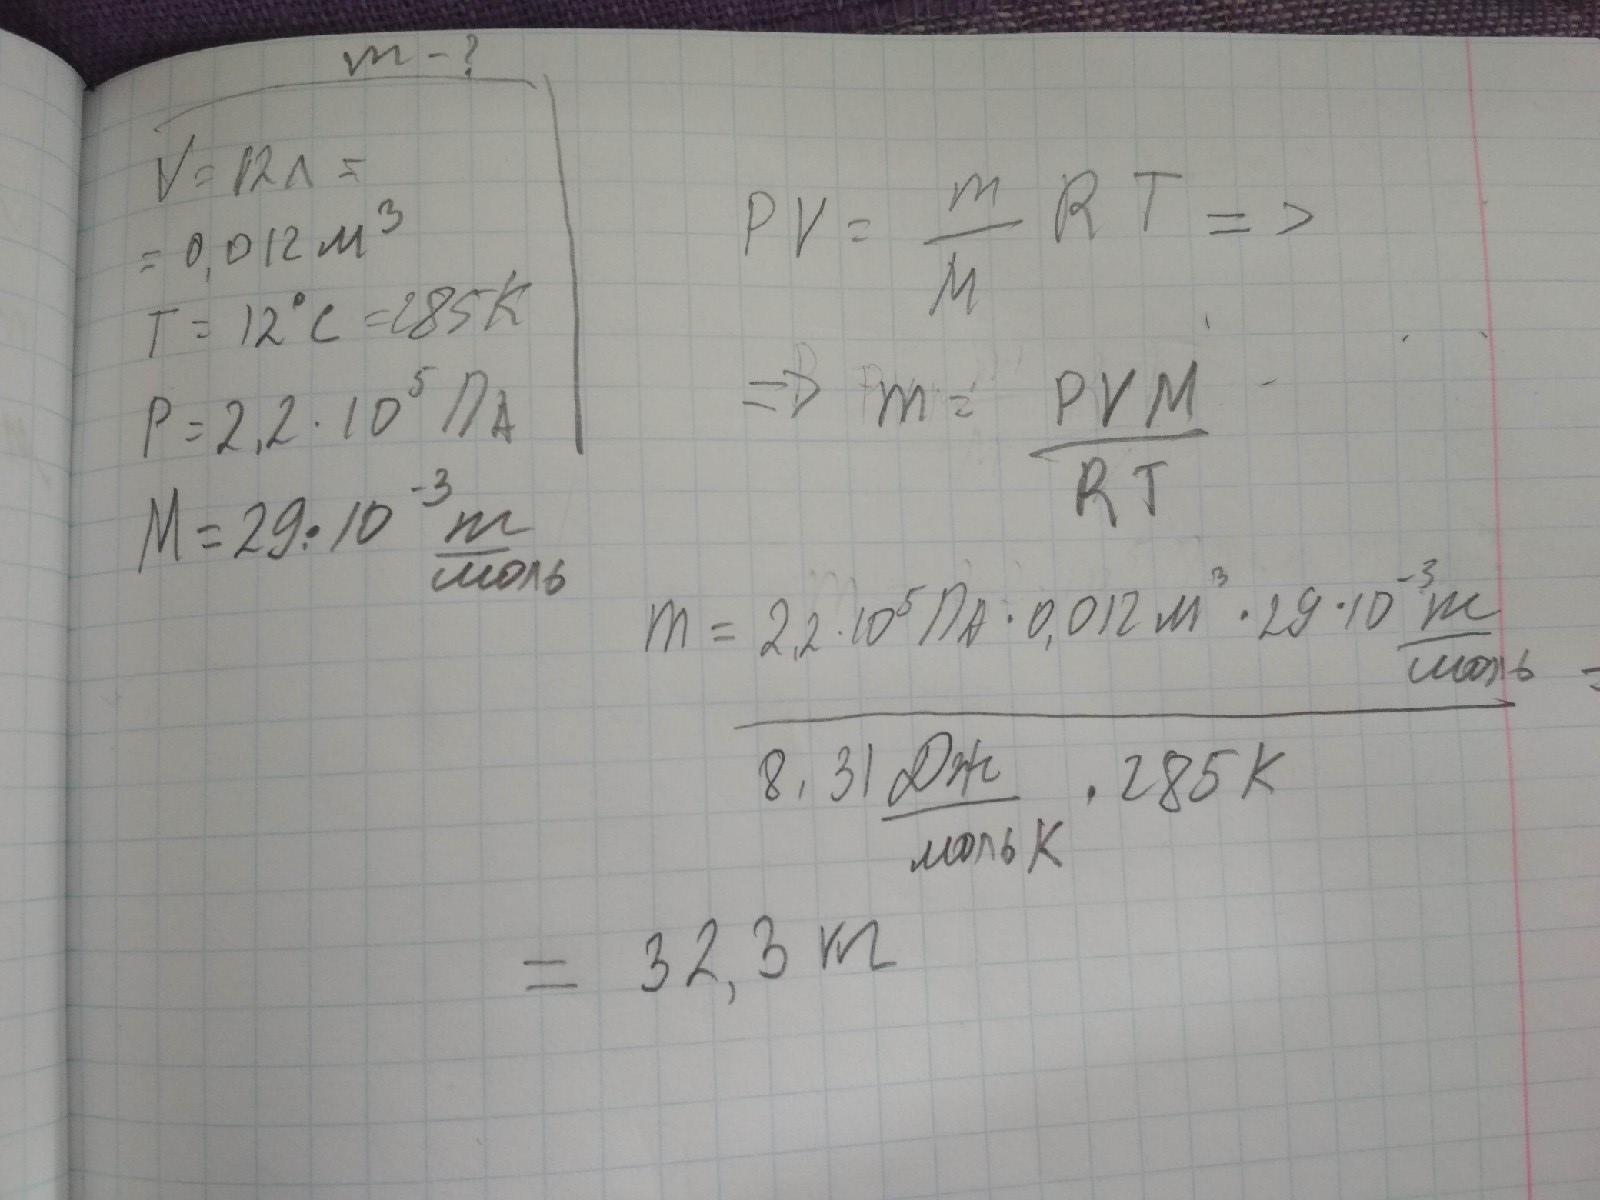 m - ?
V = 12л =
= 0,012 м³
T = 12°C = 285K
P = 2,2 · 10⁵ ПА
M = 29 · 10⁻³ m/моль
PV = m/M RT =>
=> m = PVM/RT
m = 2,2 · 10⁵ ПА · 0,012 м³ · 29 · 10⁻³ m/моль / 8,31 Дж/мольК · 285K =
= 32,3 m